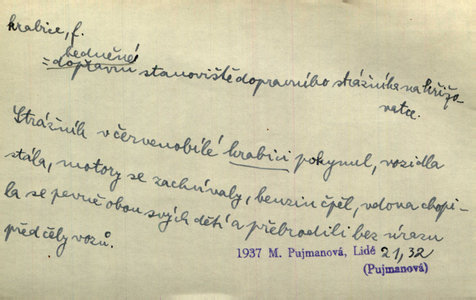 krabice, f.
bedněné
= dopravní stanoviště dopravního strážníka na křižo-
vatce.
Strážník v červenobílé krabici pokynul, vozidla
stála, motory se zachvívaly, benzin čpěl, vdova chopi-
la se pevně obou svých dětí a přebrodili bez úrazu
před čely vozů.
1937 M. Pujmanová, Lidé 21, 32
(Pujmanová)